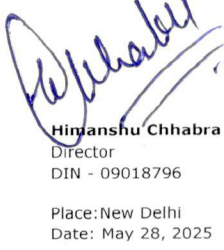 Himanshu Chhabra
Director
DIN - 09018796
Place:New Delhi
Date: May 28, 2025